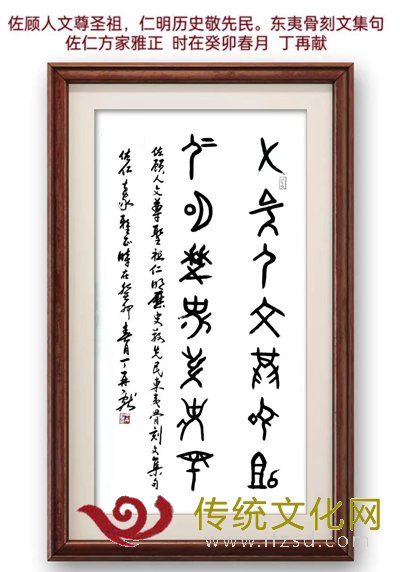 佐顾人文尊圣祖，仁明历史敬先民。东夷骨刻文集句
佐仁方家雅正 时在癸卯春月 丁再献
佐顾人文尊聖祖
仁明歷史敬先民
佐顾人文尊聖祖仁明歷史敬先民東夷骨刻文集句
佐仁方家雅正時在癸卯春月丁再献
传统文化网